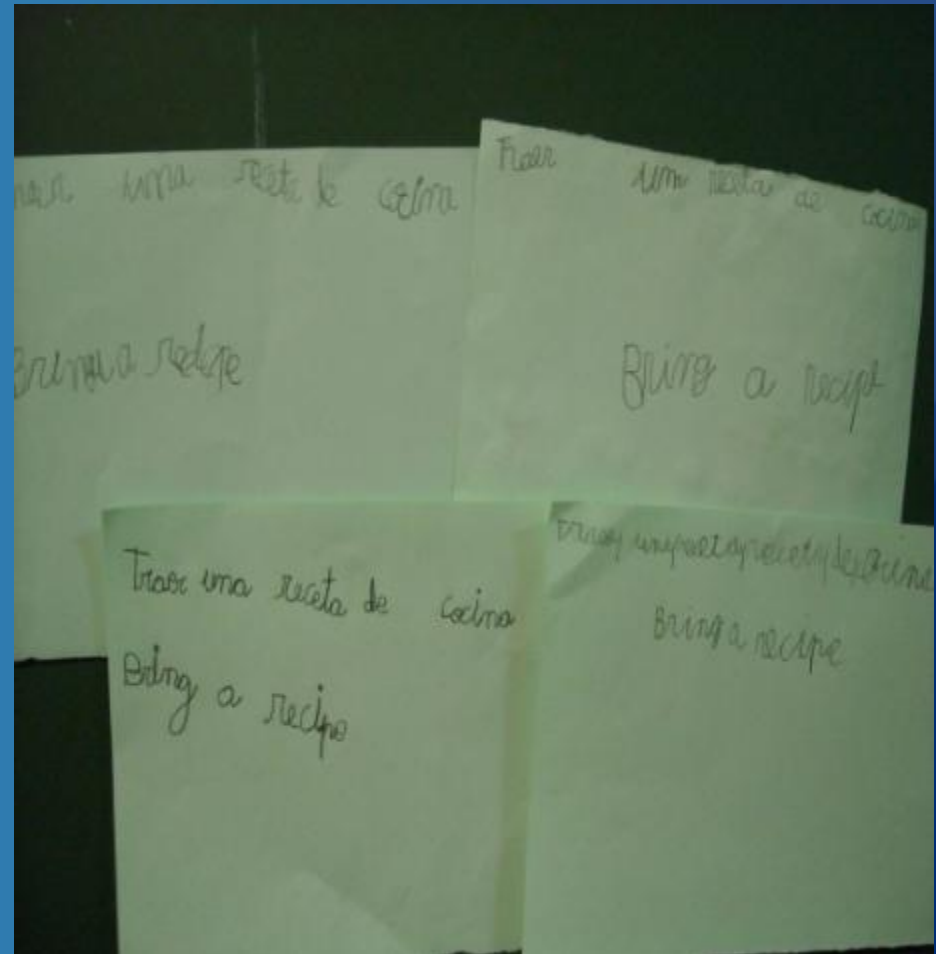 una receta de cocina
Bring a recipe
Traer una receta de cocina
Bring a recipe
Traer una receta de cocina
Bring a recipe
Bring a recipe